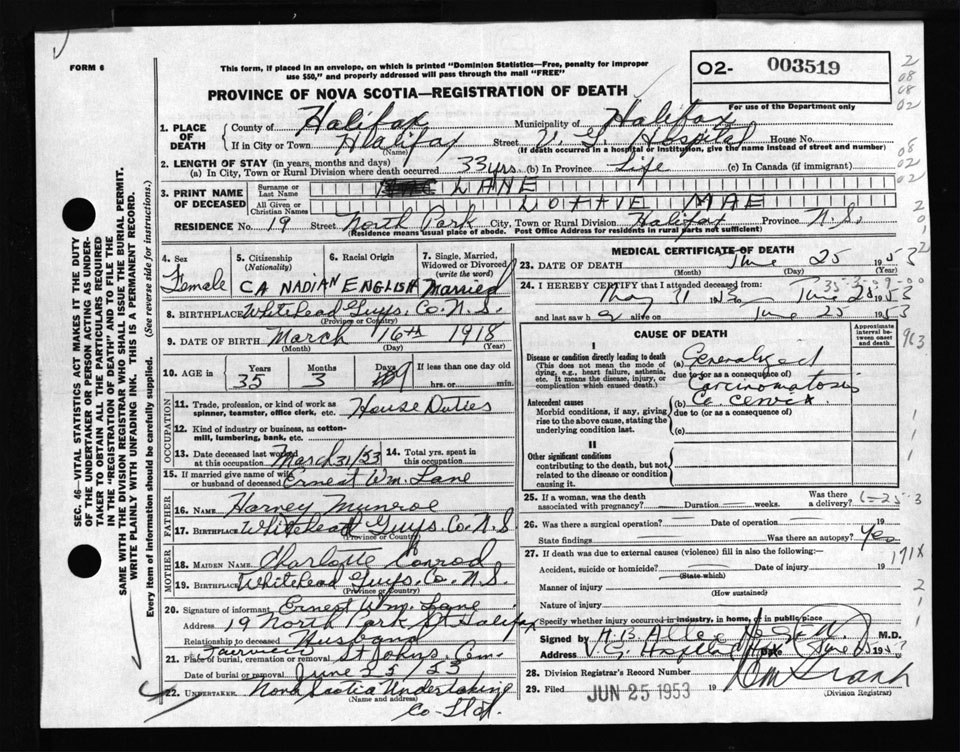 FORM 6
This form, if placed in an envelope, on which is printed "Dominion Statistics—Free, penalty for improper
use $50," and properly addressed will pass through the mail "FREE"
PROVINCE OF NOVA SCOTIA—REGISTRATION OF DEATH
02- 003519
For use of the Department only
1. PLACE OF DEATH
County of Halifax Municipality of Halifax
If in City or Town Halifax Street V. G. Hospital House No.
(Name) (If death occurred in a hospital or institution, give the name instead of street and number)
2. LENGTH OF STAY (in years, months and days)
(a) In City, Town or Rural Division where death occurred 33 yrs. (b) In Province Life (c) In Canada (if immigrant)
3. PRINT NAME OF DECEASED
Surname or Last Name LANE
All Given or Christian Names LOTTIE MAE
RESIDENCE No. 19 Street North Park City, Town or Rural Division Halifax Province N.S.
(Residence means usual place of abode. Post Office Address for residents in rural parts not sufficient)
4. Sex
Female
5. Citizenship
(Nationality)
CANADIAN
6. Racial Origin
ENGLISH
7. Single, Married, Widowed or Divorced
(write the word)
Married
8. BIRTHPLACE Whitehead Guys. Co. N.S.
(Province or Country)
9. DATE OF BIRTH March 16th 1918
(Month) (Day) (Year)
10. AGE in Years Months Days If less than one day old
35 3 9 hrs. or min.
OCCUPATION
11. Trade, profession, or kind of work as
spinner, teamster, office clerk, etc. House Duties
12. Kind of industry or business, as cotton-
mill, lumbering, bank, etc.
13. Date deceased last worked
at this occupation March 31/53
14. Total yrs. spent in
this occupation
15. If married give name of wife
or husband of deceased Ernest Wm. Lane
FATHER
16. Name Harvey Munroe
17. Birthplace Whitehead Guys. Co. N.S
(Province or Country)
MOTHER
18. MAIDEN NAME Charlotte Conrod
19. BIRTHPLACE Whitehead Guys. Co. N.S.
(Province or Country)
20. Signature of informant Ernest Wm. Lane
Address 19 North Park St Halifax
Relationship to deceased Husband
Fairview
21. Place of burial, cremation or removal St Johns Cem.
Date of burial or removal June 25 / 53
22. UNDERTAKER Nova Scotia Undertaking
(Name and address)
Co-Ltd.
MEDICAL CERTIFICATE OF DEATH
23. DATE OF DEATH June 25 1953
(Month) (Day) (Year)
24. I HEREBY CERTIFY that I attended deceased from:
May 31 1953 to June 25 1953
and last saw h er alive on June 25 1953
CAUSE OF DEATH
Approximate interval between onset and death
I
Disease or condition directly leading to death
(This does not mean the mode of dying, e.g., heart failure, asthenia, etc. It means the disease, injury, or complication which caused death.)
(a) Generalized
due to (or as a consequence of)
Carcinomatosis
Antecedent causes
Morbid conditions, if any, giving rise to the above cause, stating the underlying condition last.
(b) Ca. cervix
due to (or as a consequence of)
(c)
II
Other significant conditions
contributing to the death, but not related to the disease or condition causing it.
25. If a woman, was the death
associated with pregnancy? Duration weeks. Was there a delivery?
26. Was there a surgical operation? Date of operation 19
State findings Was there an autopsy? Yes
27. If death was due to external causes (violence) fill in also the following:—
Accident, suicide or homicide? Date of injury 19
(State which)
171X
Manner of injury
(How sustained)
Nature of injury
Specify whether injury occurred in industry, in home, or in public place
Signed by M.D.
Address V. G. Hospital Date June 25 1953
28. Division Registrar's Record Number
29. Filed JUN 25 1953 19
(Division Registrar)
SEC. 46—VITAL STATISTICS ACT MAKES IT THE DUTY
OF THE UNDERTAKER OR PERSON ACTING AS UNDER-
TAKER TO OBTAIN ALL THE PARTICULARS REQUIRED
IN THE "REGISTRATION OF DEATH" AND TO FILE THE
SAME WITH THE DIVISION REGISTRAR WHO SHALL ISSUE THE BURIAL PERMIT.
WRITE PLAINLY WITH UNFADING INK. THIS IS A PERMANENT RECORD.
Every item of information should be carefully supplied. (See reverse side for instructions.)